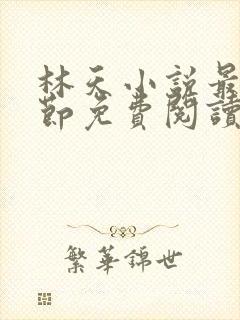 林天小説最
節免費閱讀
繁華錦世